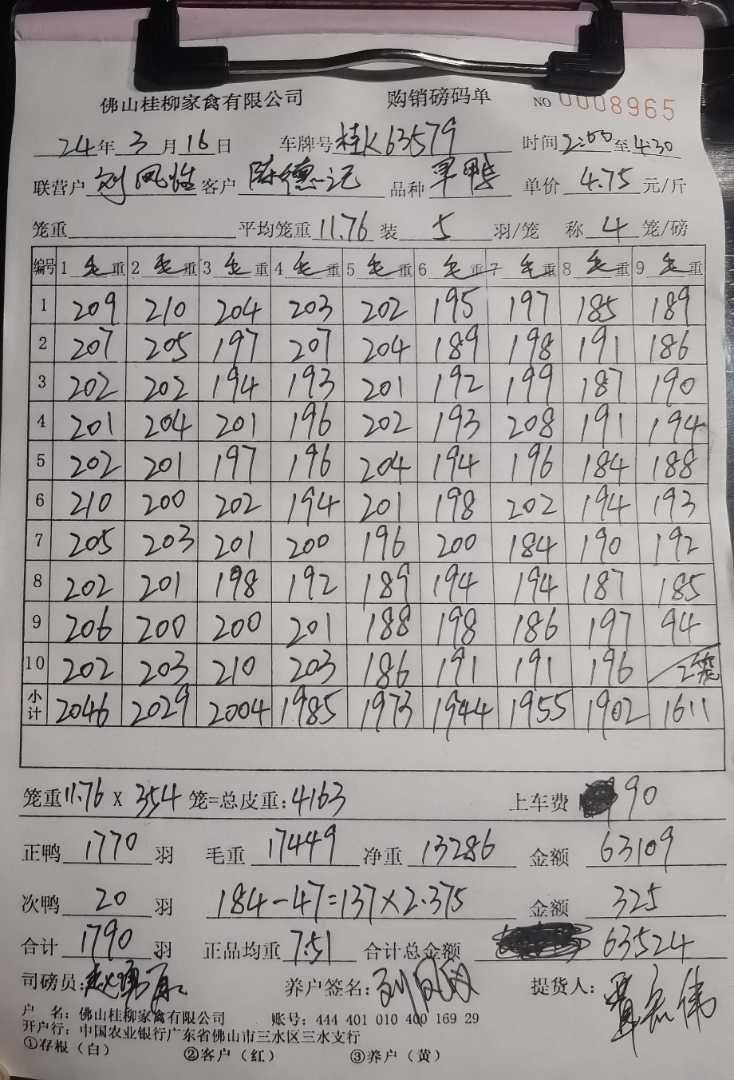 佛山桂柳家禽有限公司 购销磅码单 NO 0008965
24年3月16日 车牌号桂K63579 时间2:00至4:30
联营户刘凤 客户陈德记 品种旱鸭 单价4.75元/斤
笼重 平均笼重11.76装5羽/笼 称4笼/磅
编号 1毛重 2毛重 3毛重 4毛重 5毛重 6毛重 7毛重 8毛重 9毛重
1 209 210 204 203 202 195 197 185 189
2 207 205 197 207 204 189 198 191 186
3 202 202 194 193 201 192 199 187 190
4 201 204 201 196 202 193 208 191 194
5 202 201 197 196 204 194 196 184 188
6 210 200 202 194 201 198 202 194 193
7 205 203 201 200 196 200 184 190 192
8 202 201 198 192 189 194 194 187 185
9 206 200 200 201 188 198 186 197 94
10 202 203 210 203 186 191 191 196 2笼
小计 2046 2029 2004 1985 1973 1944 1955 1902 1611
笼重11.76X354笼=总皮重:4163 上车费90
正鸭1770羽 毛重17449净重13286 金额63109
次鸭20羽 184-47=137×2.375 金额325
合计1790羽 正品均重7.51 合计总金额63524
司磅员: 养户签名:刘凤 提货人:覃宏伟
户 名:佛山桂柳家禽有限公司 账号:444 401 010 400 169 29
开户行:中国农业银行广东省佛山市三水区三水支行
①存根(白) ②客户(红) ③养户(黄)